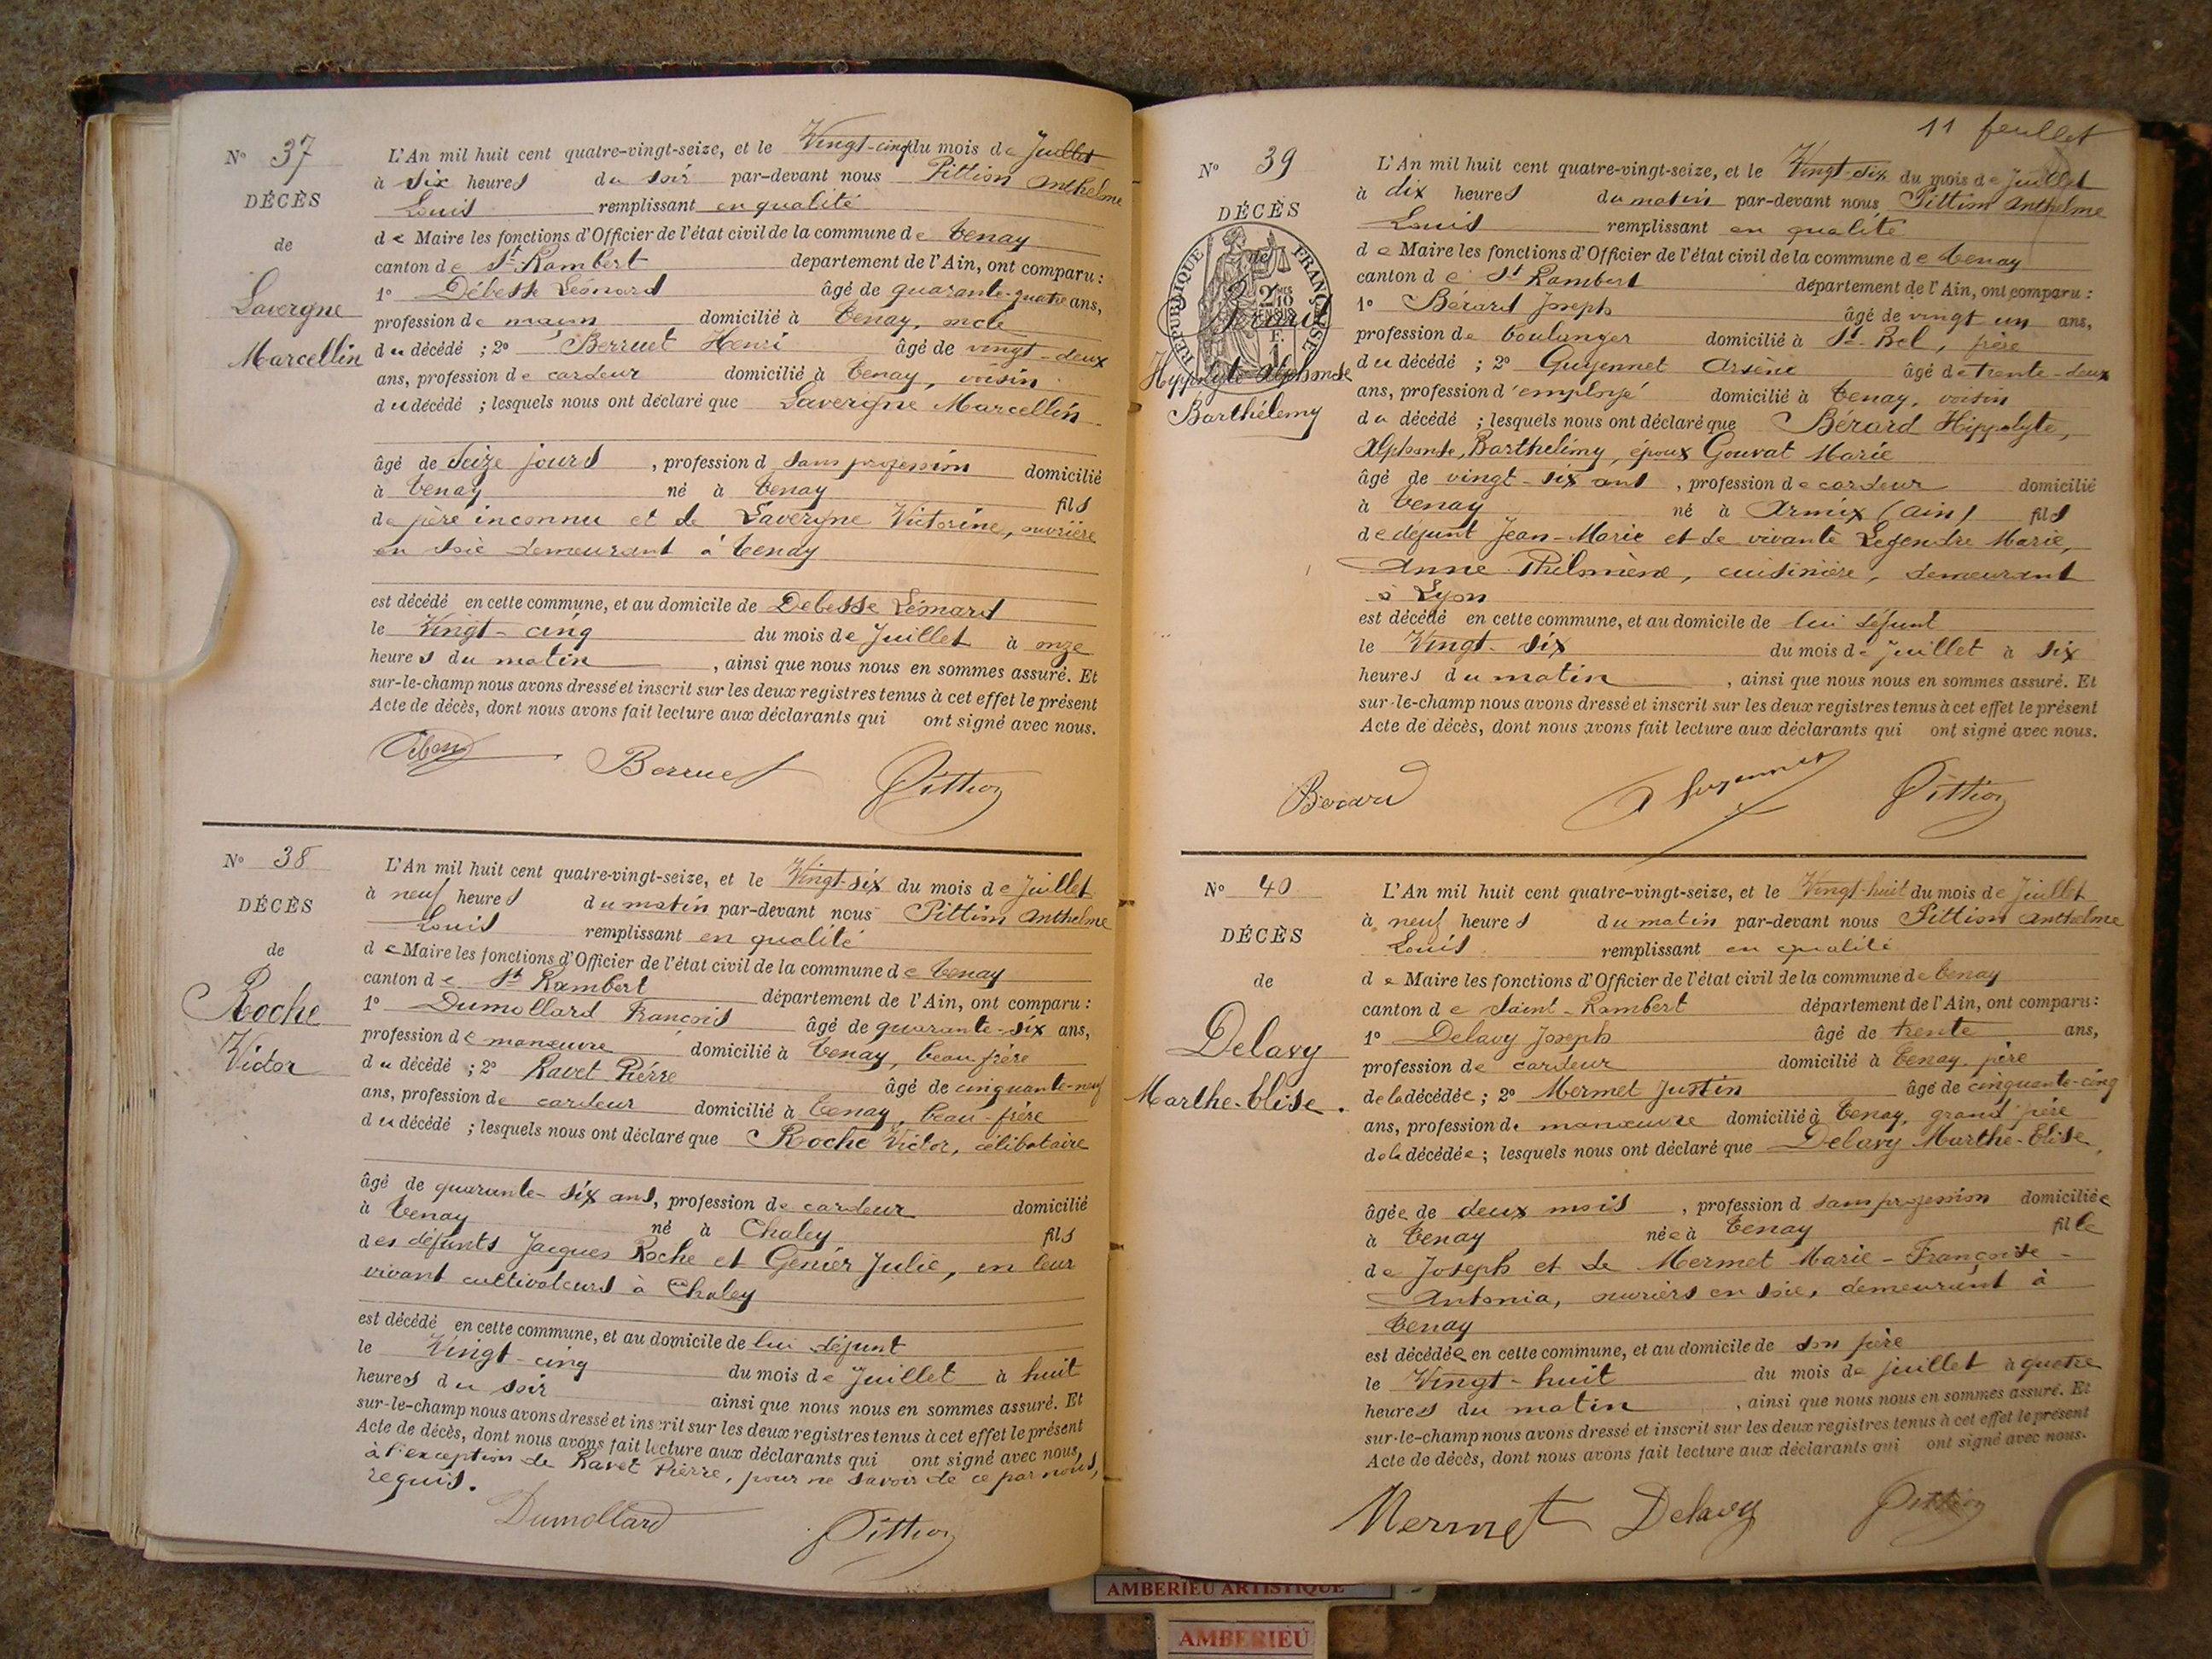 N° 37
DÉCÈS
de
Lavergne
Marcellin
L'An mil huit cent quatre-vingt-seize, et le Vingt-cinq du mois de Juillet
à six heures du soir par-devant nous Pittion Anthelme
Louis remplissant en qualité
de Maire les fonctions d'Officier de l'état civil de la commune de Tenay
canton de St Rambert département de l'Ain, ont comparu :
1° Débesse Léonard âgé de quarante-quatre ans,
profession de domicilié à Tenay,
du décédé ; 2° Berruet Henri âgé de vingt-deux
ans, profession de cardeur domicilié à Tenay, voisin
du décédé ; lesquels nous ont déclaré que Lavergne Marcellin
âgé de Seize jours, profession d sans profession domicilié
à Tenay né à Tenay fils
de père inconnu et de Lavergne Victorine, ouvrière
en soie demeurant à Tenay
est décédé en cette commune, et au domicile de Debesse Léonard
le Vingt-cinq du mois de Juillet à onze
heures du matin, ainsi que nous nous en sommes assuré. Et
sur-le-champ nous avons dressé et inscrit sur les deux registres tenus à cet effet le présent
Acte de décès, dont nous avons fait lecture aux déclarants qui ont signé avec nous.
Berruet Pittion
N° 38
DÉCÈS
de
Roche
Victor
L'An mil huit cent quatre-vingt-seize, et le Vingt-six du mois de Juillet
à neuf heures du matin par-devant nous Pittion Anthelme
Louis remplissant en qualité
de Maire les fonctions d'Officier de l'état civil de la commune de Tenay
canton de St Rambert département de l'Ain, ont comparu :
1° Dumollard François âgé de quarante-six ans,
profession de manœuvre domicilié à Tenay, beau frère
du décédé ; 2° Ravet Pierre âgé de cinquante-neuf
ans, profession de cardeur domicilié à Tenay, beau-frère
du décédé ; lesquels nous ont déclaré que Roche Victor, célibataire
âgé de quarante-six ans, profession de cardeur domicilié
à Tenay né à Chaley fils
des défunts Jacques Roche et Génier Julie, en leur
vivant cultivateurs à Chaley
est décédé en cette commune, et au domicile de lui défunt
le Vingt-cinq du mois de Juillet à huit
heures du soir ainsi que nous nous en sommes assuré. Et
sur-le-champ nous avons dressé et inscrit sur les deux registres tenus à cet effet le présent
Acte de décès, dont nous avons fait lecture aux déclarants qui ont signé avec nous,
à l'exception de Ravet Pierre, pour ne savoir de ce par nous,
requis.
Dumollard Pittion
11 feuillet
N° 39
DÉCÈS
de
RÉPUBLIQUE FRANÇAISE
Bérard
Hippolyte Alphonse
Barthélemy
L'An mil huit cent quatre-vingt-seize, et le Vingt-six du mois de Juillet
à dix heures du matin par-devant nous Pittion Anthelme
Louis remplissant en qualité
de Maire les fonctions d'Officier de l'état civil de la commune de Tenay
canton de St Rambert département de l'Ain, ont comparu :
1° Bérard Joseph âgé de vingt un ans,
profession de boulanger domicilié à St-Bel, frère
du décédé ; 2° Guyennet Arsène âgé de trente-deux
ans, profession d'employé domicilié à Tenay, voisin
du décédé ; lesquels nous ont déclaré que Bérard Hippolyte,
Alphonse, Barthélémy, époux Gouvat Marie
âgé de vingt-six ans, profession de cardeur domicilié
à Tenay né à Armix (Ain) fils
de défunt Jean-Marie et de vivante Legendre Marie,
Anne Philomène, cuisinière, demeurant
à Lyon
est décédé en cette commune, et au domicile de lui défunt
le Vingt-six du mois de juillet à six
heures du matin, ainsi que nous nous en sommes assuré. Et
sur-le-champ nous avons dressé et inscrit sur les deux registres tenus à cet effet le présent
Acte de décès, dont nous avons fait lecture aux déclarants qui ont signé avec nous.
Berard A Guyennet Pittion
N° 40
DÉCÈS
de
Delavy
Marthe-Elise.
L'An mil huit cent quatre-vingt-seize, et le Vingt-huit du mois de Juillet
à neuf heures du matin par-devant nous Pittion Anthelme
Louis remplissant en qualité
de Maire les fonctions d'Officier de l'état civil de la commune de Tenay
canton de Saint-Rambert département de l'Ain, ont comparu :
1° Delavy Joseph âgé de trente ans,
profession de cardeur domicilié à Tenay, père
de la décédée ; 2° Mermet Justin âgé de cinquante-cinq
ans, profession de manœuvre domicilié à Tenay, grand père
de la décédée ; lesquels nous ont déclaré que Delavy Marthe-Elise,
âgée de deux mois, profession d sans profession domiciliée
à Tenay née à Tenay fille
de Joseph et de Mermet Marie-Françoise-
Antonia, ouvriers en soie, demeurant à
Tenay
est décédée en cette commune, et au domicile de son père
le Vingt-huit du mois de juillet à quatre
heures du matin, ainsi que nous nous en sommes assuré. Et
sur-le-champ nous avons dressé et inscrit sur les deux registres tenus à cet effet le présent
Acte de décès, dont nous avons fait lecture aux déclarants qui ont signé avec nous.
Mermet Delavy Pittion
AMBERIEU ARTISTIQUE
AMBERIEU